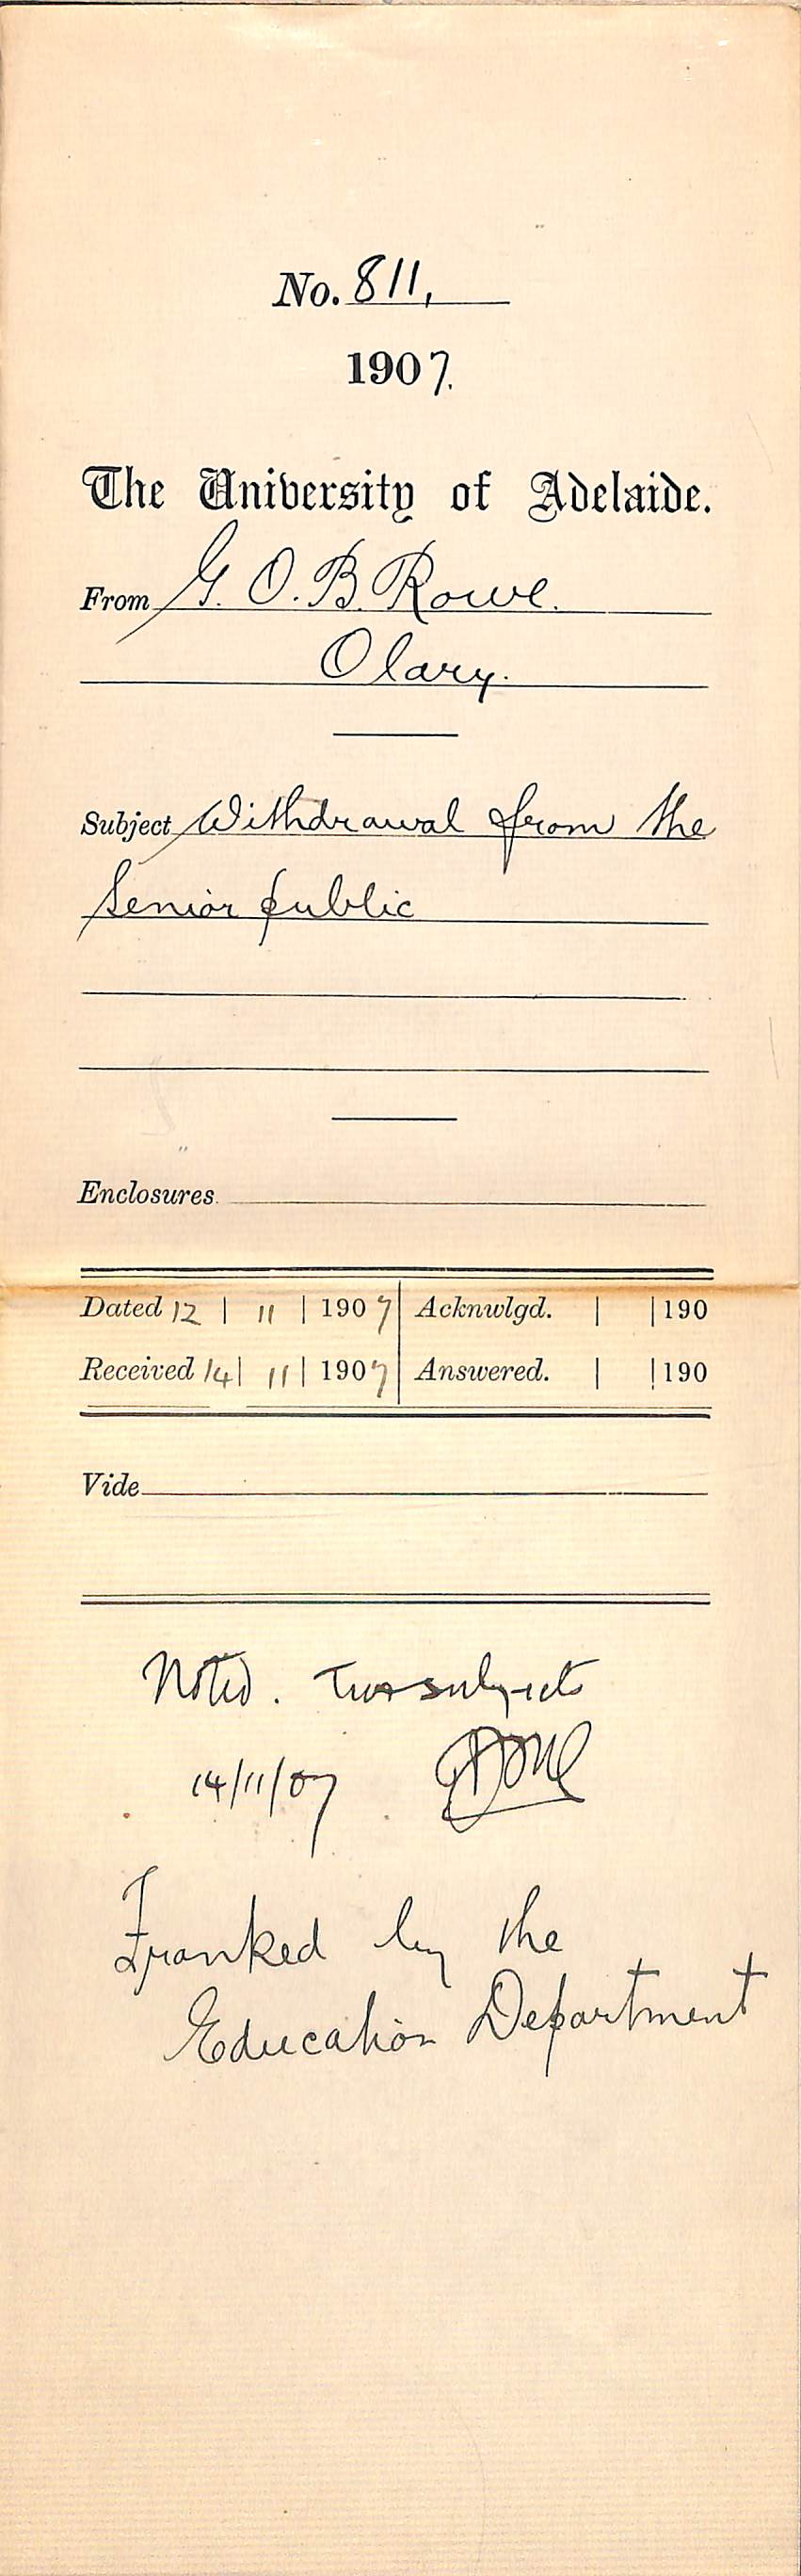 No. 811,
1907.
The University of Adelaide.
From G. O. B. Rowe.
Olary.
Subject Withdrawal from the
Senior public
Enclosures
Dated 12 | 11 | 1907 Acknwlgd. | | 190
Received 14 | 11 | 1907 Answered. | | 190
Vide
Noted. Two subjects
14/11/07
Franked by the
Education Department